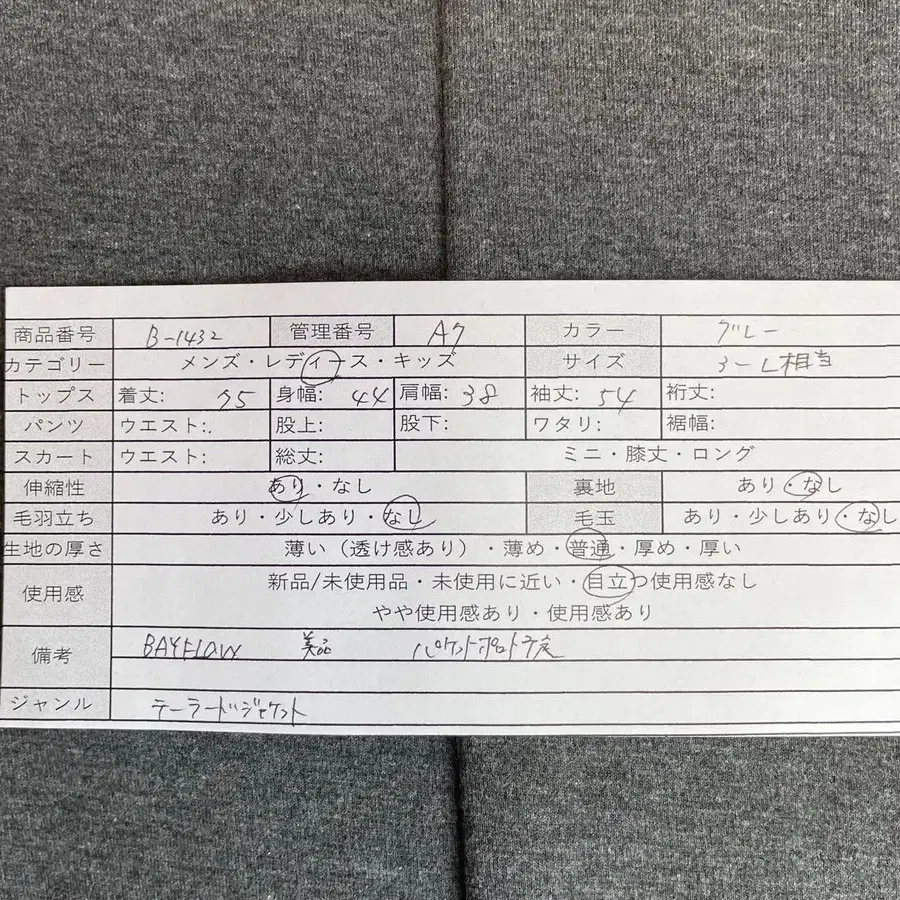 商品番号 B-1432 管理番号 A7 カラー グレー
カテゴリー メンズ・レディース・キッズ サイズ 3-L相当
トップス 着丈: 75 身幅: 44 肩幅: 38 袖丈: 54 裄丈:
パンツ ウエスト: 股上: 股下: ワタリ: 裾幅:
スカート ウエスト: 総丈: ミニ・膝丈・ロング
伸縮性 あり・なし 裏地 あり・なし
毛羽立ち あり・少しあり・なし 毛玉 あり・少しあり・なし
生地の厚さ 薄い(透け感あり)・薄め・普通・厚め・厚い
使用感 新品/未使用品・未使用に近い・目立つ使用感なし
やや使用感あり・使用感あり
備考 BAYFLOW 美品
ジャンル テーラードジャケット